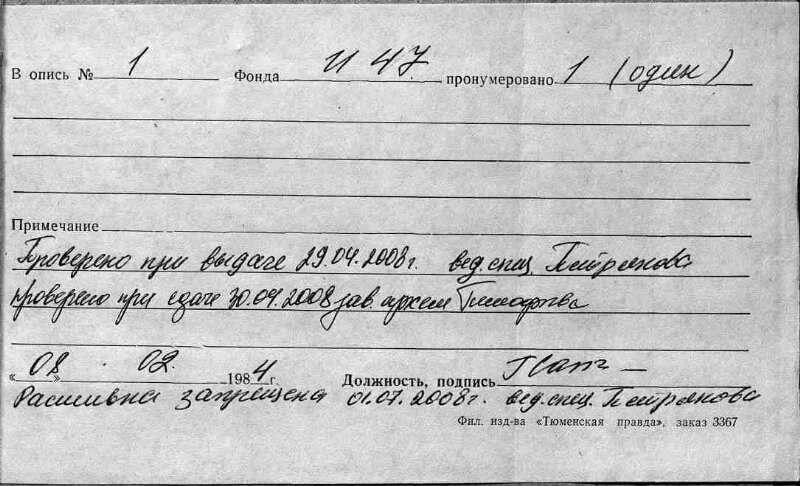 В опись № 1 Фонда И 47 пронумеровано 1 (один)
Примечание
Проверено при выдаче 29.04.2008г. вед. спец. Петрякова
проверено при сдаче 30.04.2008 зав. архем Тимофеева
«08» 02. 1984 г. Должность, подпись
Расшивка запрещена 01.07.2008г. вед. спец. Петрякова
Фил. изд-ва «Тюменская правда», заказ 3367